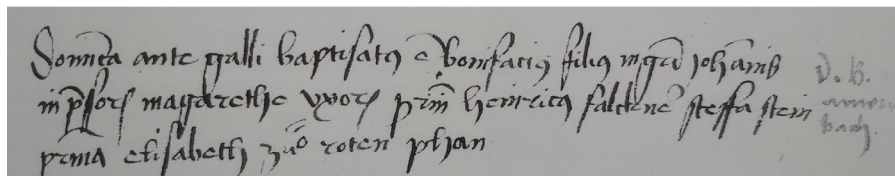 Dominica ante galli baptisatus est bonifacius filius mgri Johannis
impressoris magarethe vxoris prin heinricus falckener steffa stein
prima elisabeth zuo roten phan
D. B.
amer
bach.